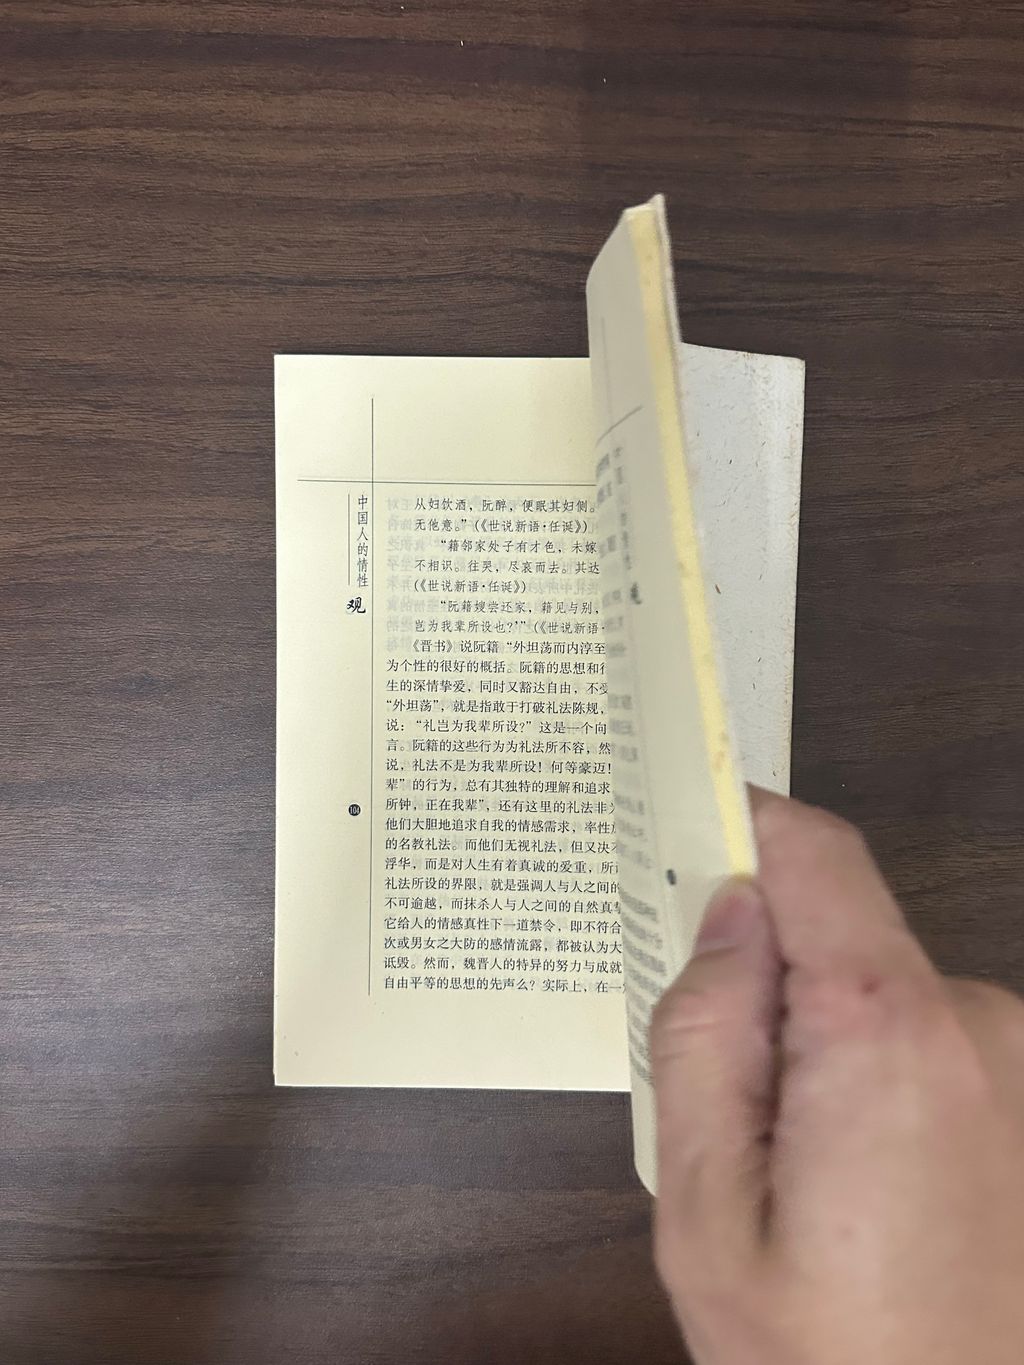 中国人的情性
观
从妇饮酒，阮醉，便眠其妇侧。
无他意。”（《世说新语·任诞》）
“籍邻家处子有才色，未嫁
不相识。往哭，尽哀而去。其达
（《世说新语·任诞》）
“阮籍嫂尝还家，籍见与别，
岂为我辈所设也？’”（《世说新语·
《晋书》说阮籍“外坦荡而内淳至
为个性的很好的概括。阮籍的思想和行
生的深情挚爱，同时又豁达自由，不受
“外坦荡”，就是指敢于打破礼法陈规，
说：“礼岂为我辈所设？”这是一个向
言。阮籍的这些行为为礼法所不容，然
说，礼法不是为我辈所设！何等豪迈！
辈”的行为，总有其独特的理解和追求
所钟，正在我辈”，还有这里的礼法非为
他们大胆地追求自我的情感需求，率性
的名教礼法。而他们无视礼法，但又决不
浮华，而是对人生有着真诚的爱重，所
礼法所设的界限，就是强调人与人之间的
不可逾越，而抹杀人与人之间的自然真
它给人的情感真性下一道禁令，即不符合
次或男女之大防的感情流露，都被认为大
诋毁。然而，魏晋人的特异的努力与成就
自由平等的思想的先声么？实际上，在一
104